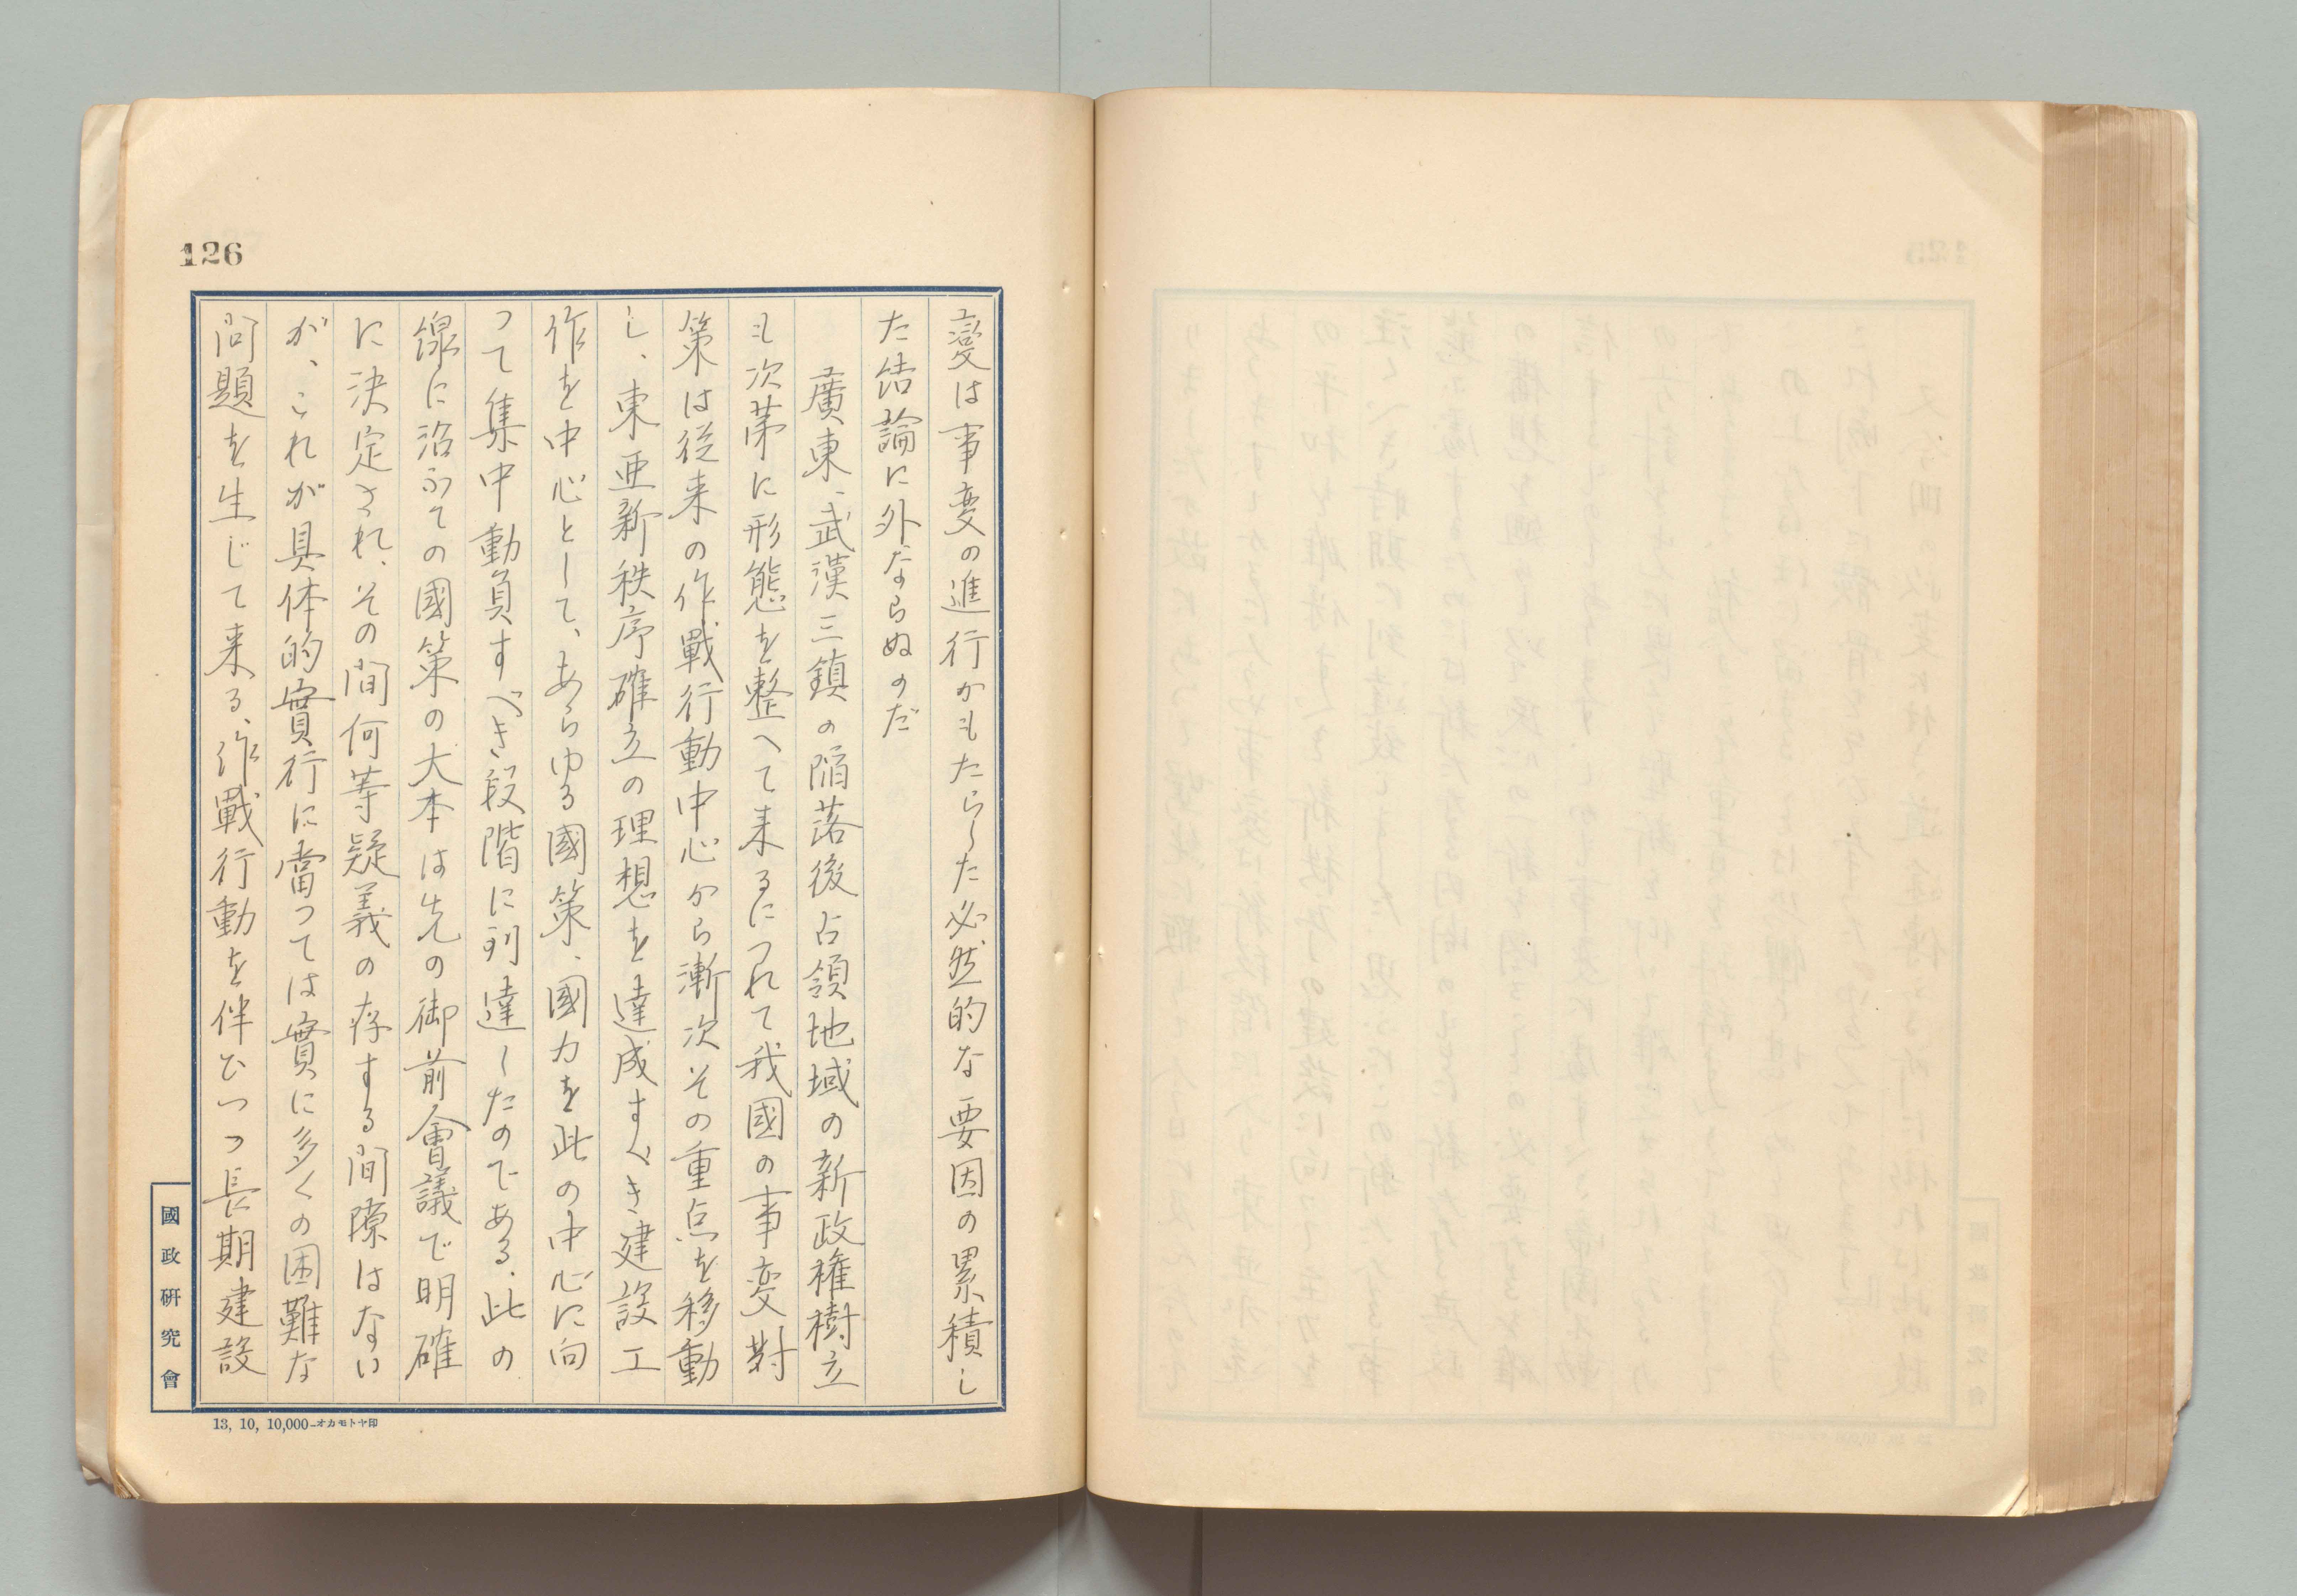 126
變は事変の進行がもたらした必然的な要因の累積し
た結論に外ならぬのだ
廣東、武漢三鎮の陥落後占領地域の新政権樹立
も次苐に形態を整へて来るにつれて我國の事変対
策は従来の作戰行動中心から漸次その重点を移動
し、東亜新秩序確立の理想を達成すべき建設工
作を中心として、あらゆる國策、國力を此の中心に向
つて集中動員すべき段階に到達したのである、此の
線に沿ふての國策の大本は先の御前會議で明確
に決定され、その間何等疑義の存する間隙はない
が、これが具体的實行に當つては實に多くの困難な
問題を生じて来る、作戰行動を伴ひつつ長期建設
國政研究會
13, 10, 10,000—オカモトヤ印